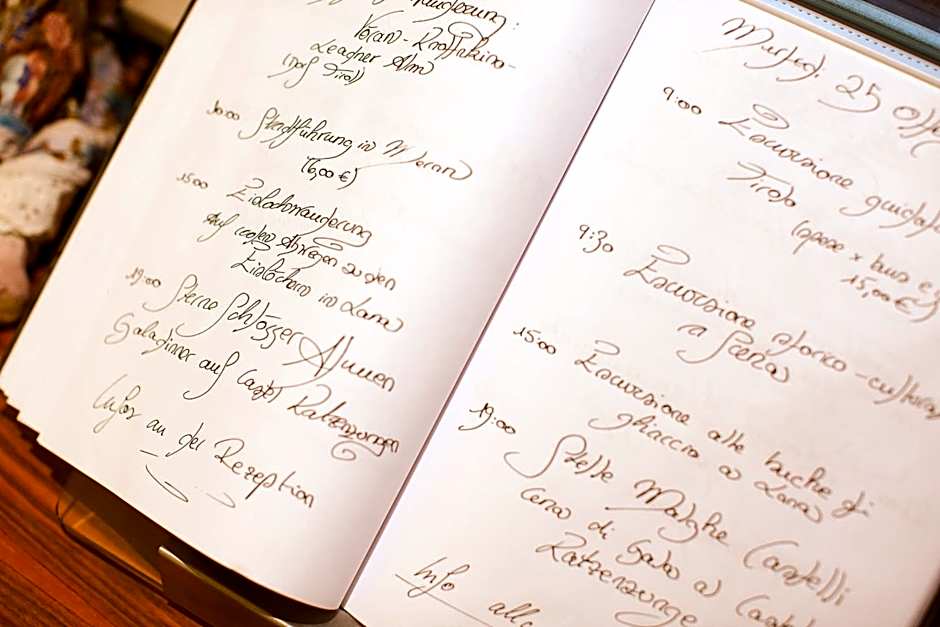 Vöran - Knottnkino -
Leadner Alm
(Dorf Tirol)
10:00 Stadtführung in Meran
(6,00 €)
15:00 Eislochwanderung
Auf coolen Abwegen zu den
Eislöchern in Lana
19:00 Sterne Schlösser Almen
Galadinner auf Castel Katzenzungen
Infos an der Rezeption
25
9:00 Escursione guidata
Tirolo
15,00 €)
9:30 Escursione storico-cultural
a
15:00 Escursione alle buche di
ghiaccio a Lana
19:00 Stelle Malghe Castelli
Cena di Gala a Castel
Katzenzunge
Info alla